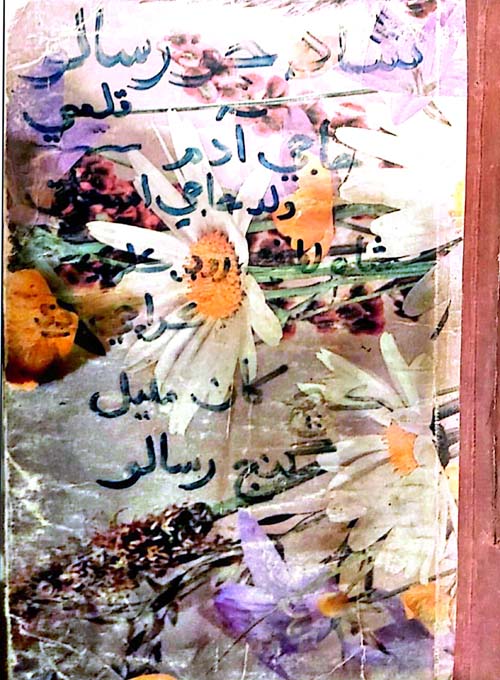 شاه جو رسالو
قلمي
حاجي آدم
ولد حاجي اسحاق
شاه
ڪراچي
کان مليل
گنج رسالو